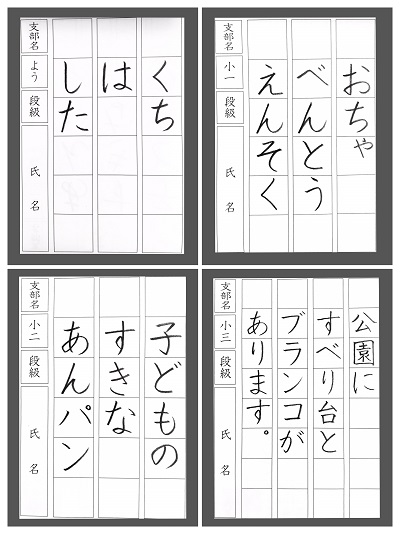 くち
は
した
支部名
よう
段級
氏名
おちゃ
べんとう
えんそく
支部名
小一
段級
氏名
子どもの
すきな
あんパン
支部名
小二
段級
氏名
公園に
すべり台と
ブランコが
あります。
支部名
小三
段級
氏名